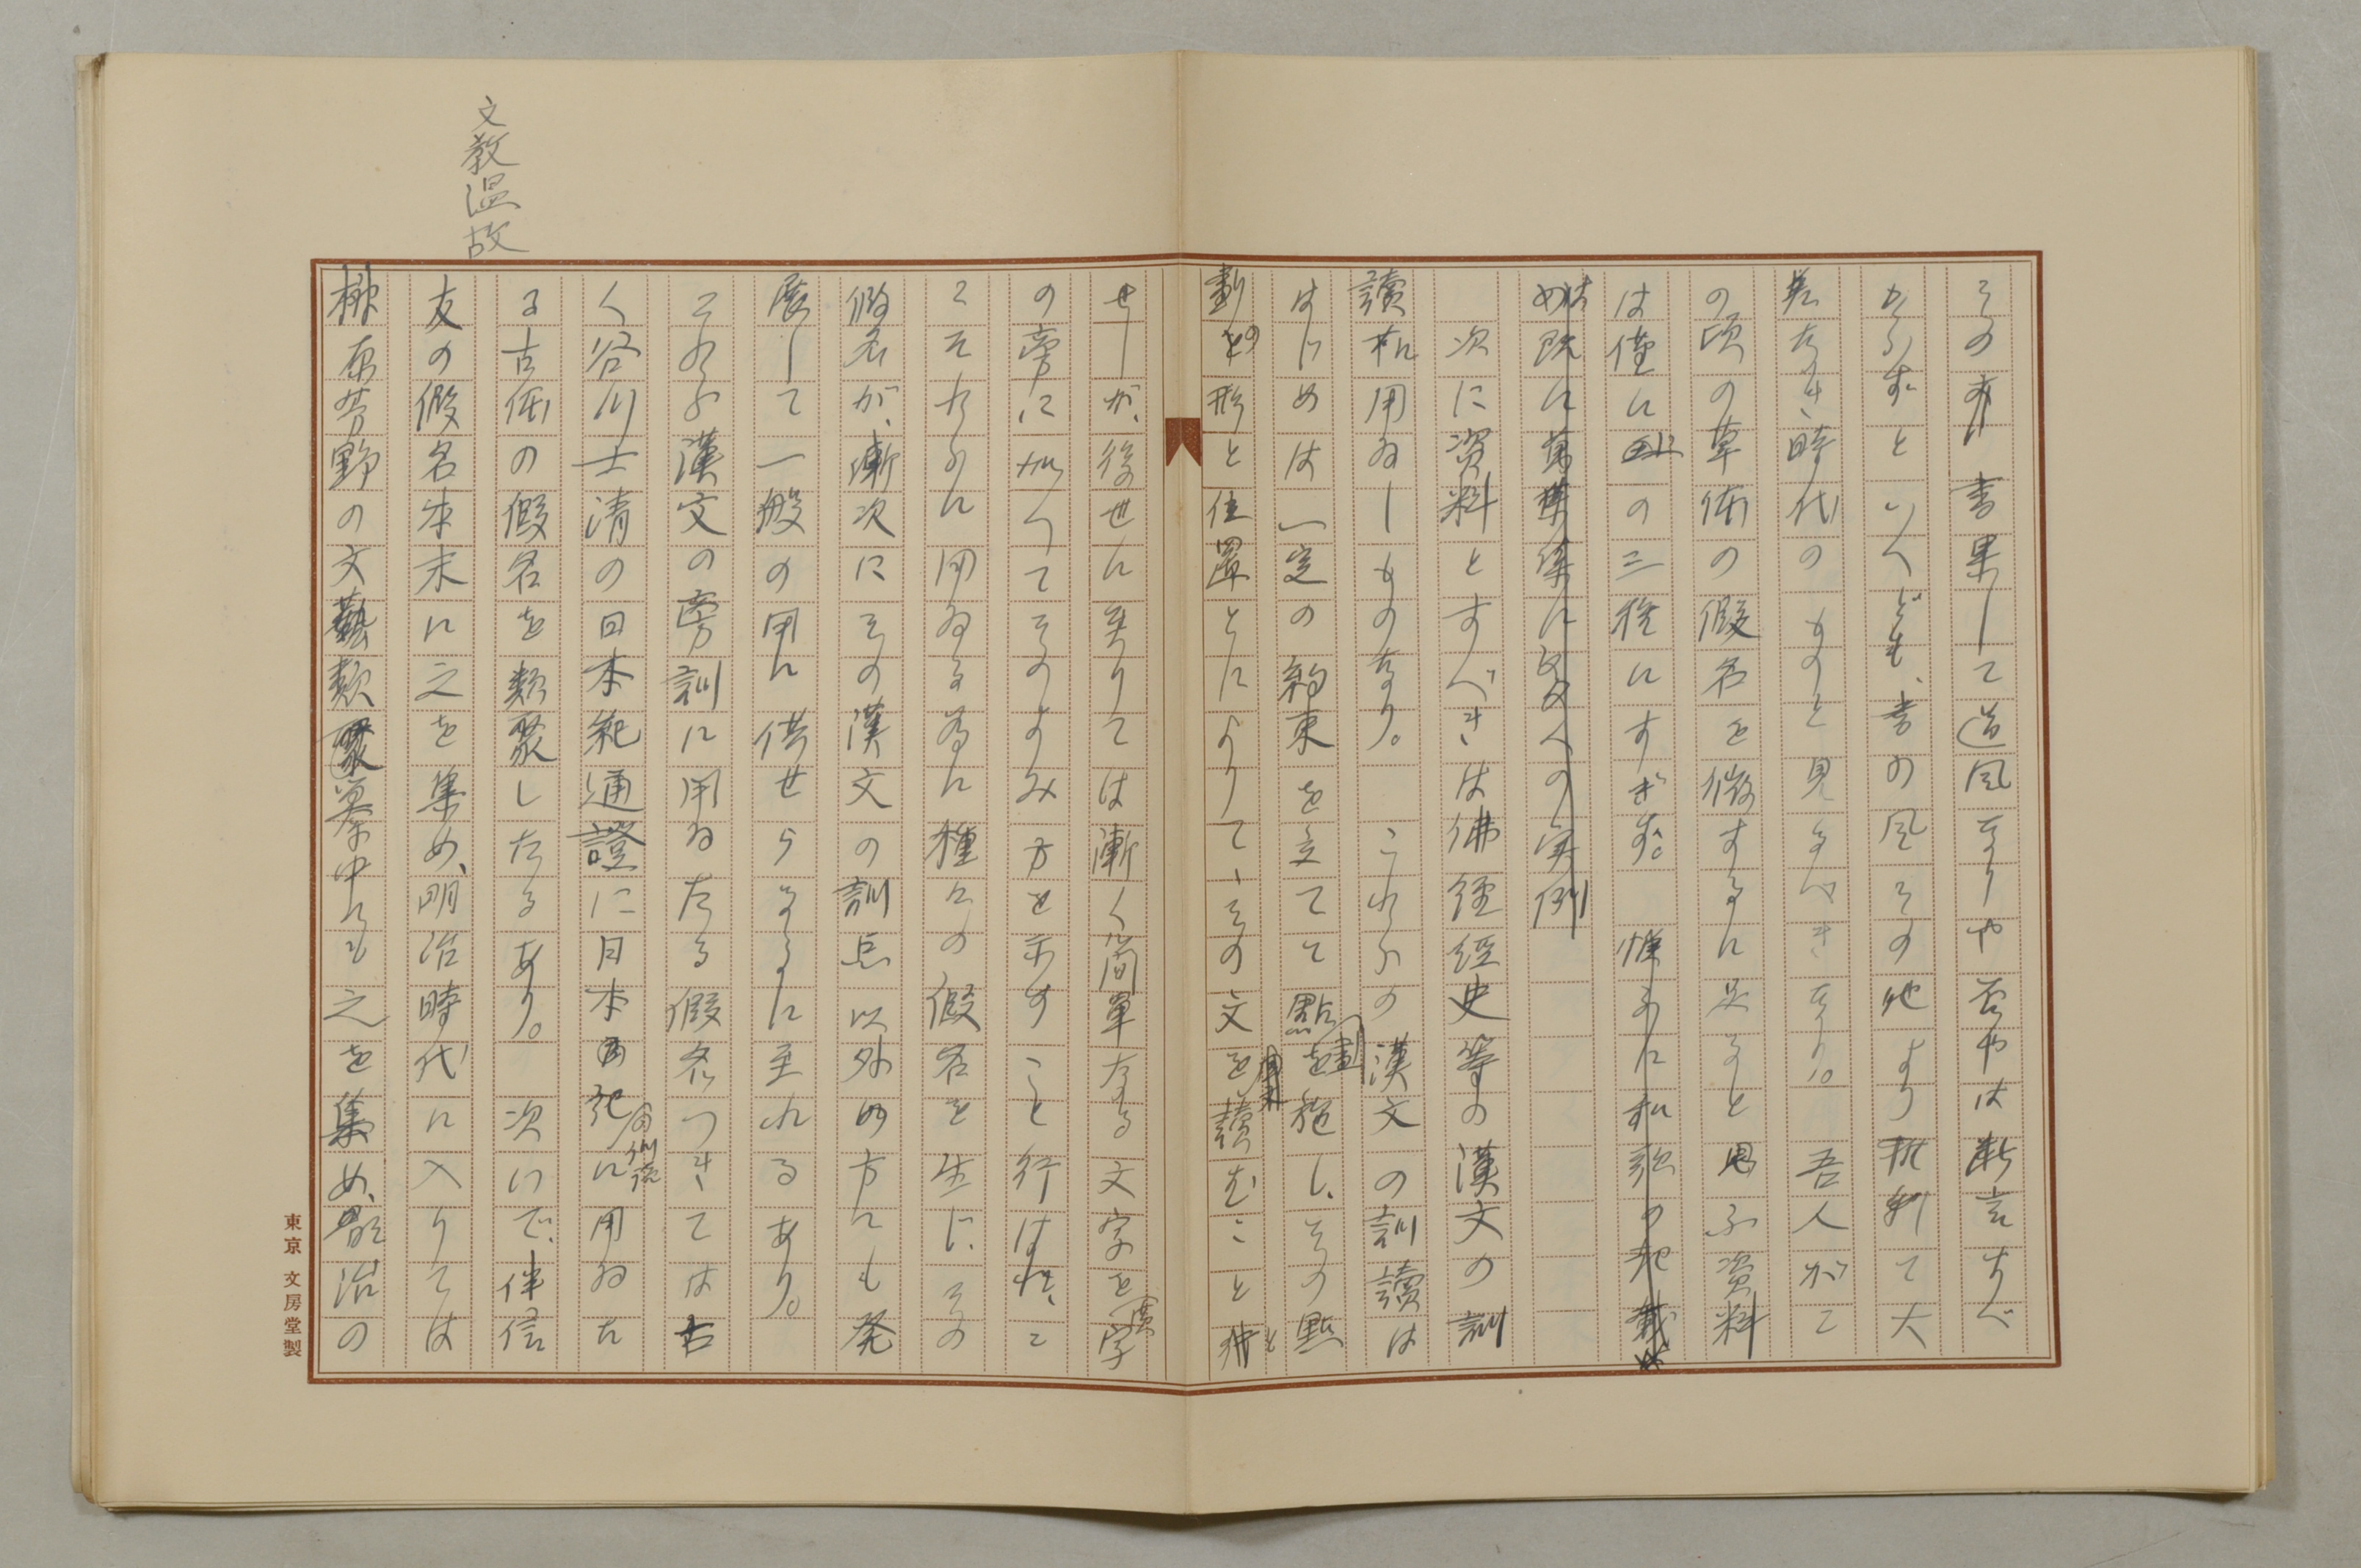 その書果して道風なりや否やは断言すべ
からずといへども、書の風その他より推判して大
差なき時代のものと見るべきなり。吾人がこ
の頃の草体の假名を徴するに足ると思ふ資料
は僅にの三種にすぎず。
次に資料とすべきは佛經經史等の漢文の訓
讀に用ゐしものなり。これらの漢文の訓讀は
はじめは一定の約束を立てて點畫を施し、その點
畫の形と位置とによりて、その文を讀むことと
せしが、後世に至りては漸く簡單なる文字を漢字
の旁に加へてそのよみ方を示すこと行はれ、こ
こにそれらに用ゐる為に種々の假名を生じ、その
假名が、漸次にその漢文の訓点以外の方にも発
展して一般の用に供せらるるに至れるあり。
これら漢文の旁訓に用ゐたる假名につきては古
く谷川士清の日本紀通證に日本紀の訓点に用ゐた
る古体の假名を類聚したるあり。次いで、伴信
友の假名本末に之を集め、明治時代に入りては
榊原芳野の文藝類纂中にも之を集め、明治の
文教温故
東京 文房堂製